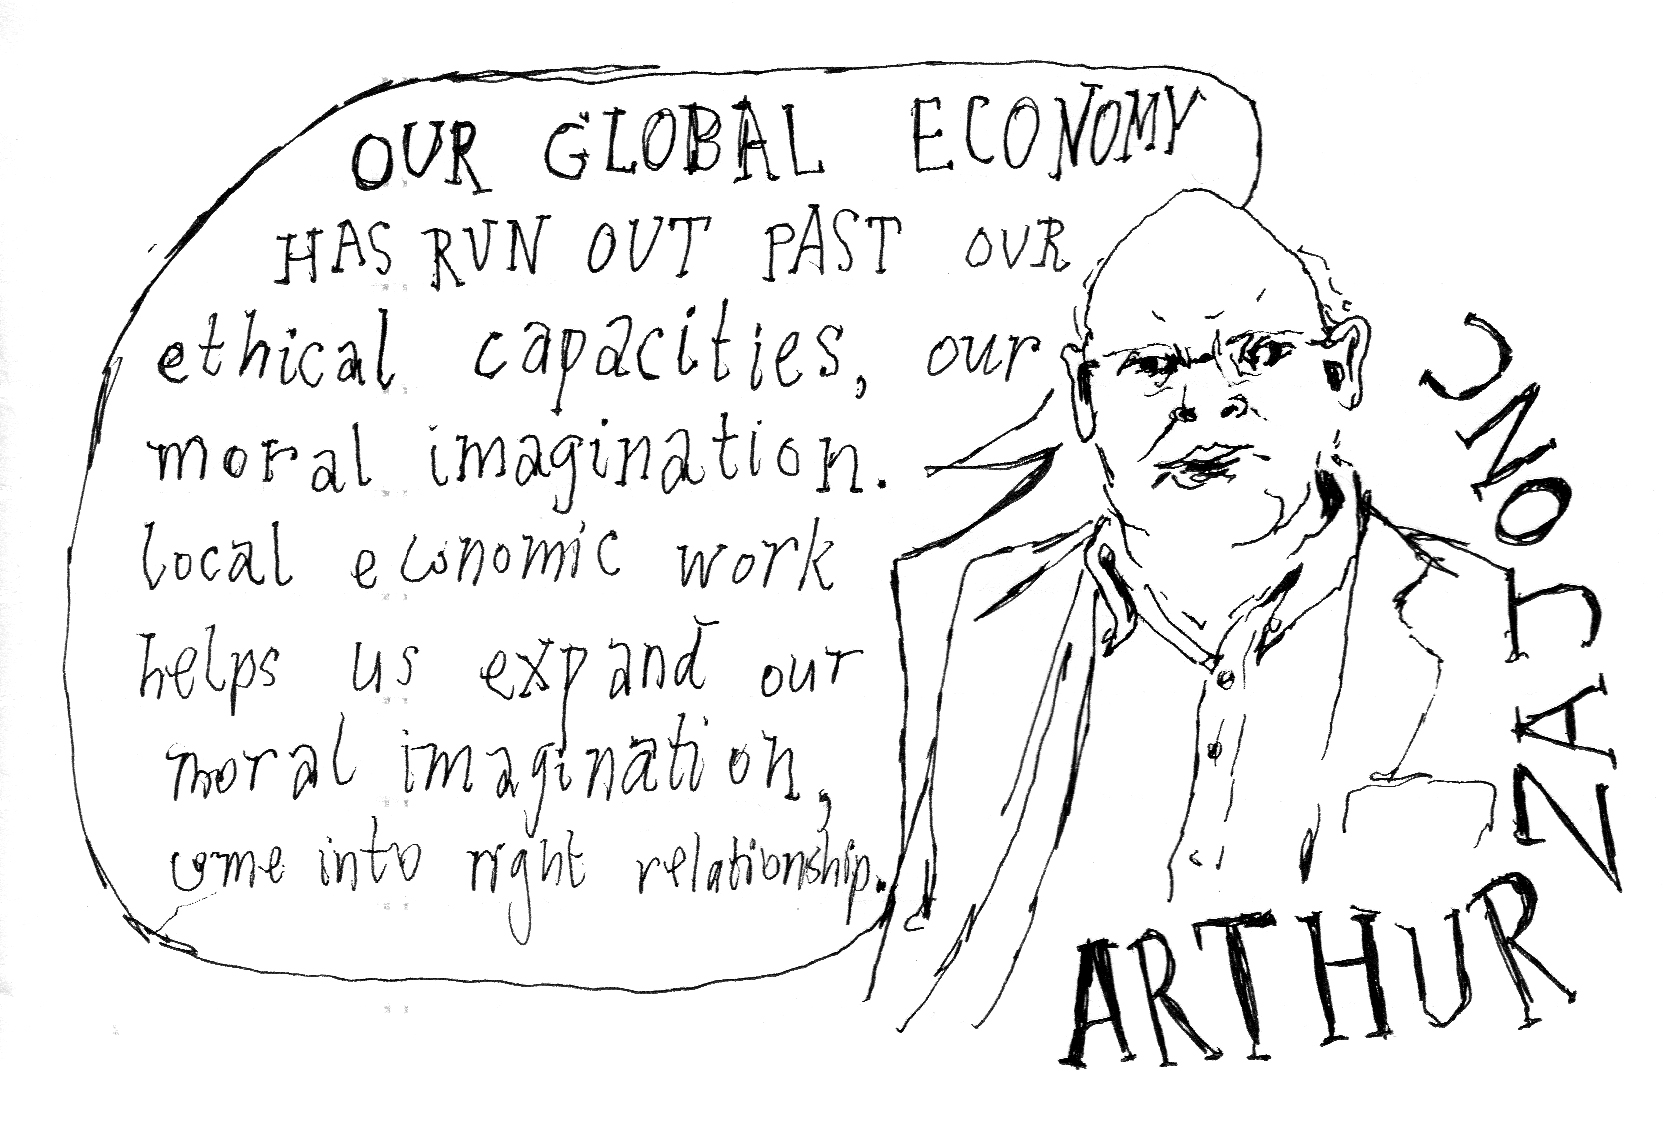 OUR GLOBAL ECONOMY
HAS RUN OUT PAST OUR
ethical capacities, our
moral imagination.
local economic work
helps us expand our
moral imagination,
come into right relationship.
ARTHUR
ZAJONC